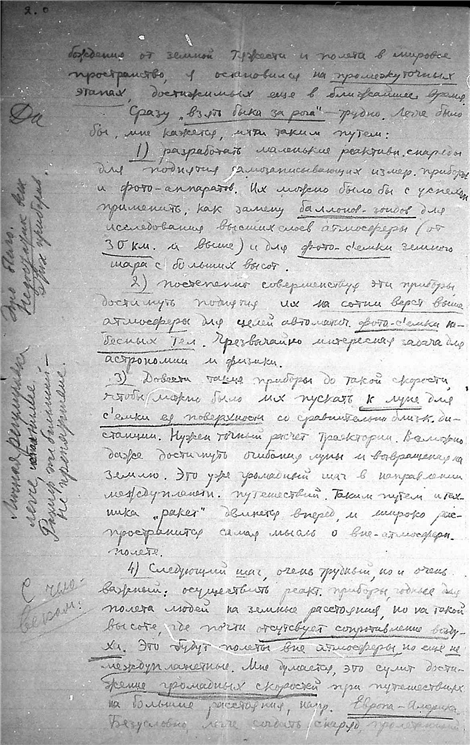 2.
бождению от земной тяжести и полета в мировое
пространство, я остановился на промежуточных
этапах, достижимых еще в ближайшее время
Сразу „взять быка за рога" – трудно. Легче было
бы, мне кажется, итти таким путем:
1) разработать маленькие реактивн. снаряды
для поднятия самозаписывающих измер. приборов
и фото-аппаратов. Их можно было бы с успехом
применить, как замену баллонов-зондов для
исследования высших слоев атмосферы (от
30 км. и выше) и для фото-съемки земного
шара с больших высот.
2) постепенно совершенствуя эти приборы
достигнуть поднятия их на сотни верст выше
атмосферы для целей автоматич. фото-съемки не-
бесных тел. Чрезвычайно интересная задача для
астрономии и физики.
3) Довести такие приборы до такой скорости,
чтобы можно было их пускать к луне для
съемки ее поверхности со сравнительно близк. ди-
станции. Нужен точный расчет траектории. Возможно
даже достигнуть огибания луны и возвращения на
землю. Это уже громадный шаг в направлении
междупланетн. путешествий. Таким путем и тех-
ника „ракет" двинется вперед, и широко рас-
пространится самая мысль о вне-атмосферн.
полете.
4) Следующий шаг, очень трудный, но и очень
важный: осуществить реакт. приборы, годные для
полета людей на земные расстояния, но на такой
высоте, где почти отсутсвует сопротивление возду-
ха. Это будут полеты вне атмосферы но еще не
междупланетные. Мне думается, это сулит дости-
жение громадных скоростей при путешествиях
на большие расстояния, напр. Европа-Америка.
Безусловно, легче создать снаряд,
Да
Это благо.
приборов.
легче
не
С чело-
веком: